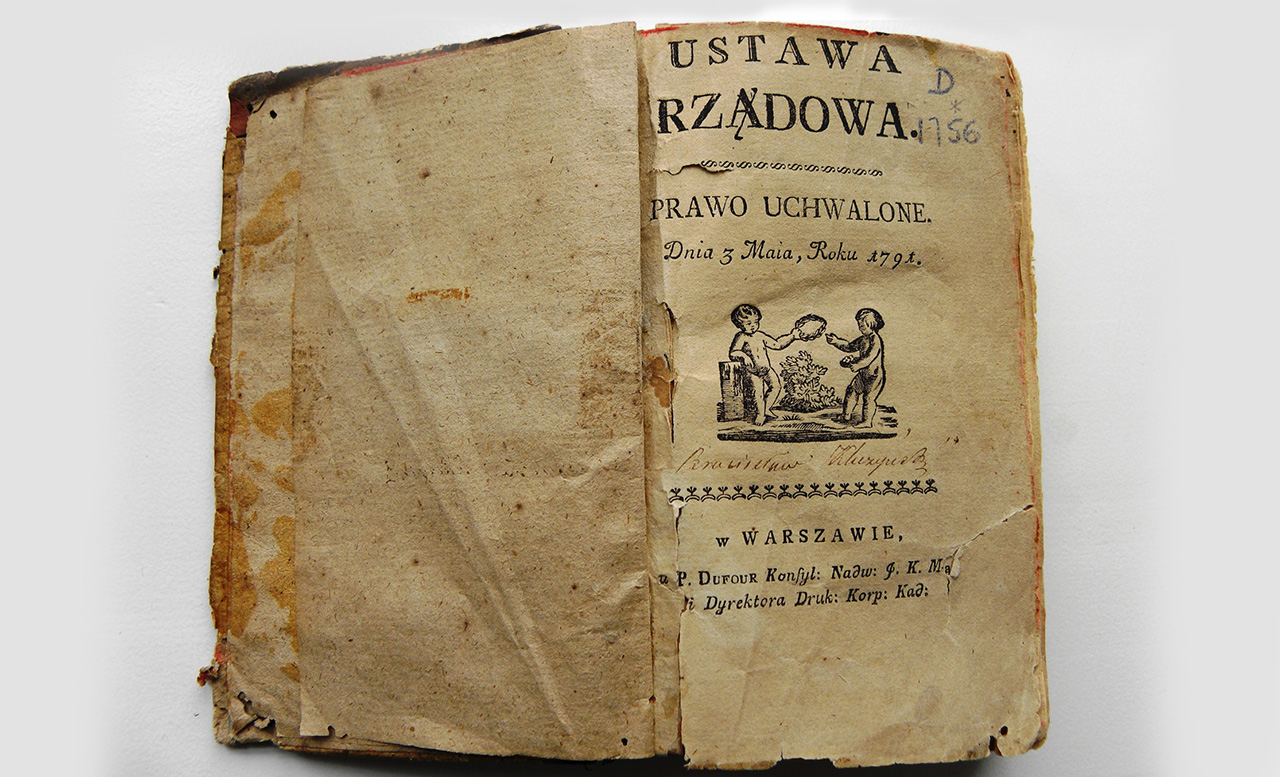 USTAWA
RZĄDOWA.
D
1756
PRAWO UCHWALONE.
Dnia 3 Maia, Roku 1791.
w WARSZAWIE,
u P. DUFOUR Konſyl: Nadw: J. K. M
i Dyrektora Druk: Korp: Kad: